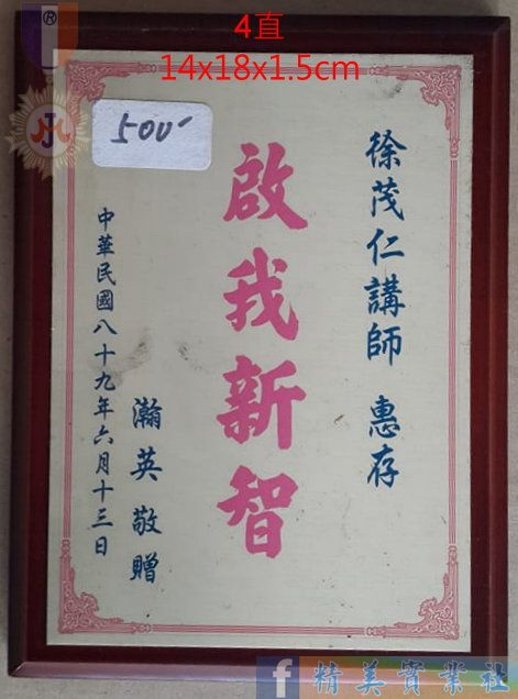 4直
14x18x1.5cm
®
500-
徐茂仁講師 惠存
啟我新智
瀚英敬贈
中華民國八十九年六月十三日
f 精美實業社